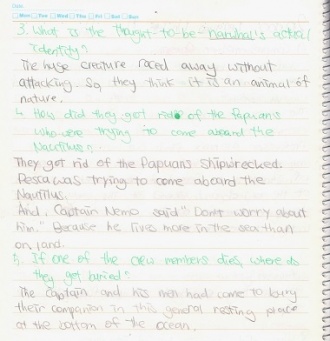 Date
Mon Tue Wed Thu Fri Sat Sun
3. What is the thought-to-be-narwhal's actual
identity?
The huge creature raced away without
attacking. So they think it is an animal of
nature.
4. How did they get rid of the Papuans
who were trying to come aboard the
Nautilus?
They got rid of the Papuans Shipwrecked.
Pesca was trying to come aboard the
Nautilus.
And, Captain Nemo said "Don't worry about
him." Because he lives more in the sea than
on, land.
5. If one of the crew members dies, where do
they get buried?
The Captain and his men had come to bury
their companion in this general resting place
at the bottom of the ocean.